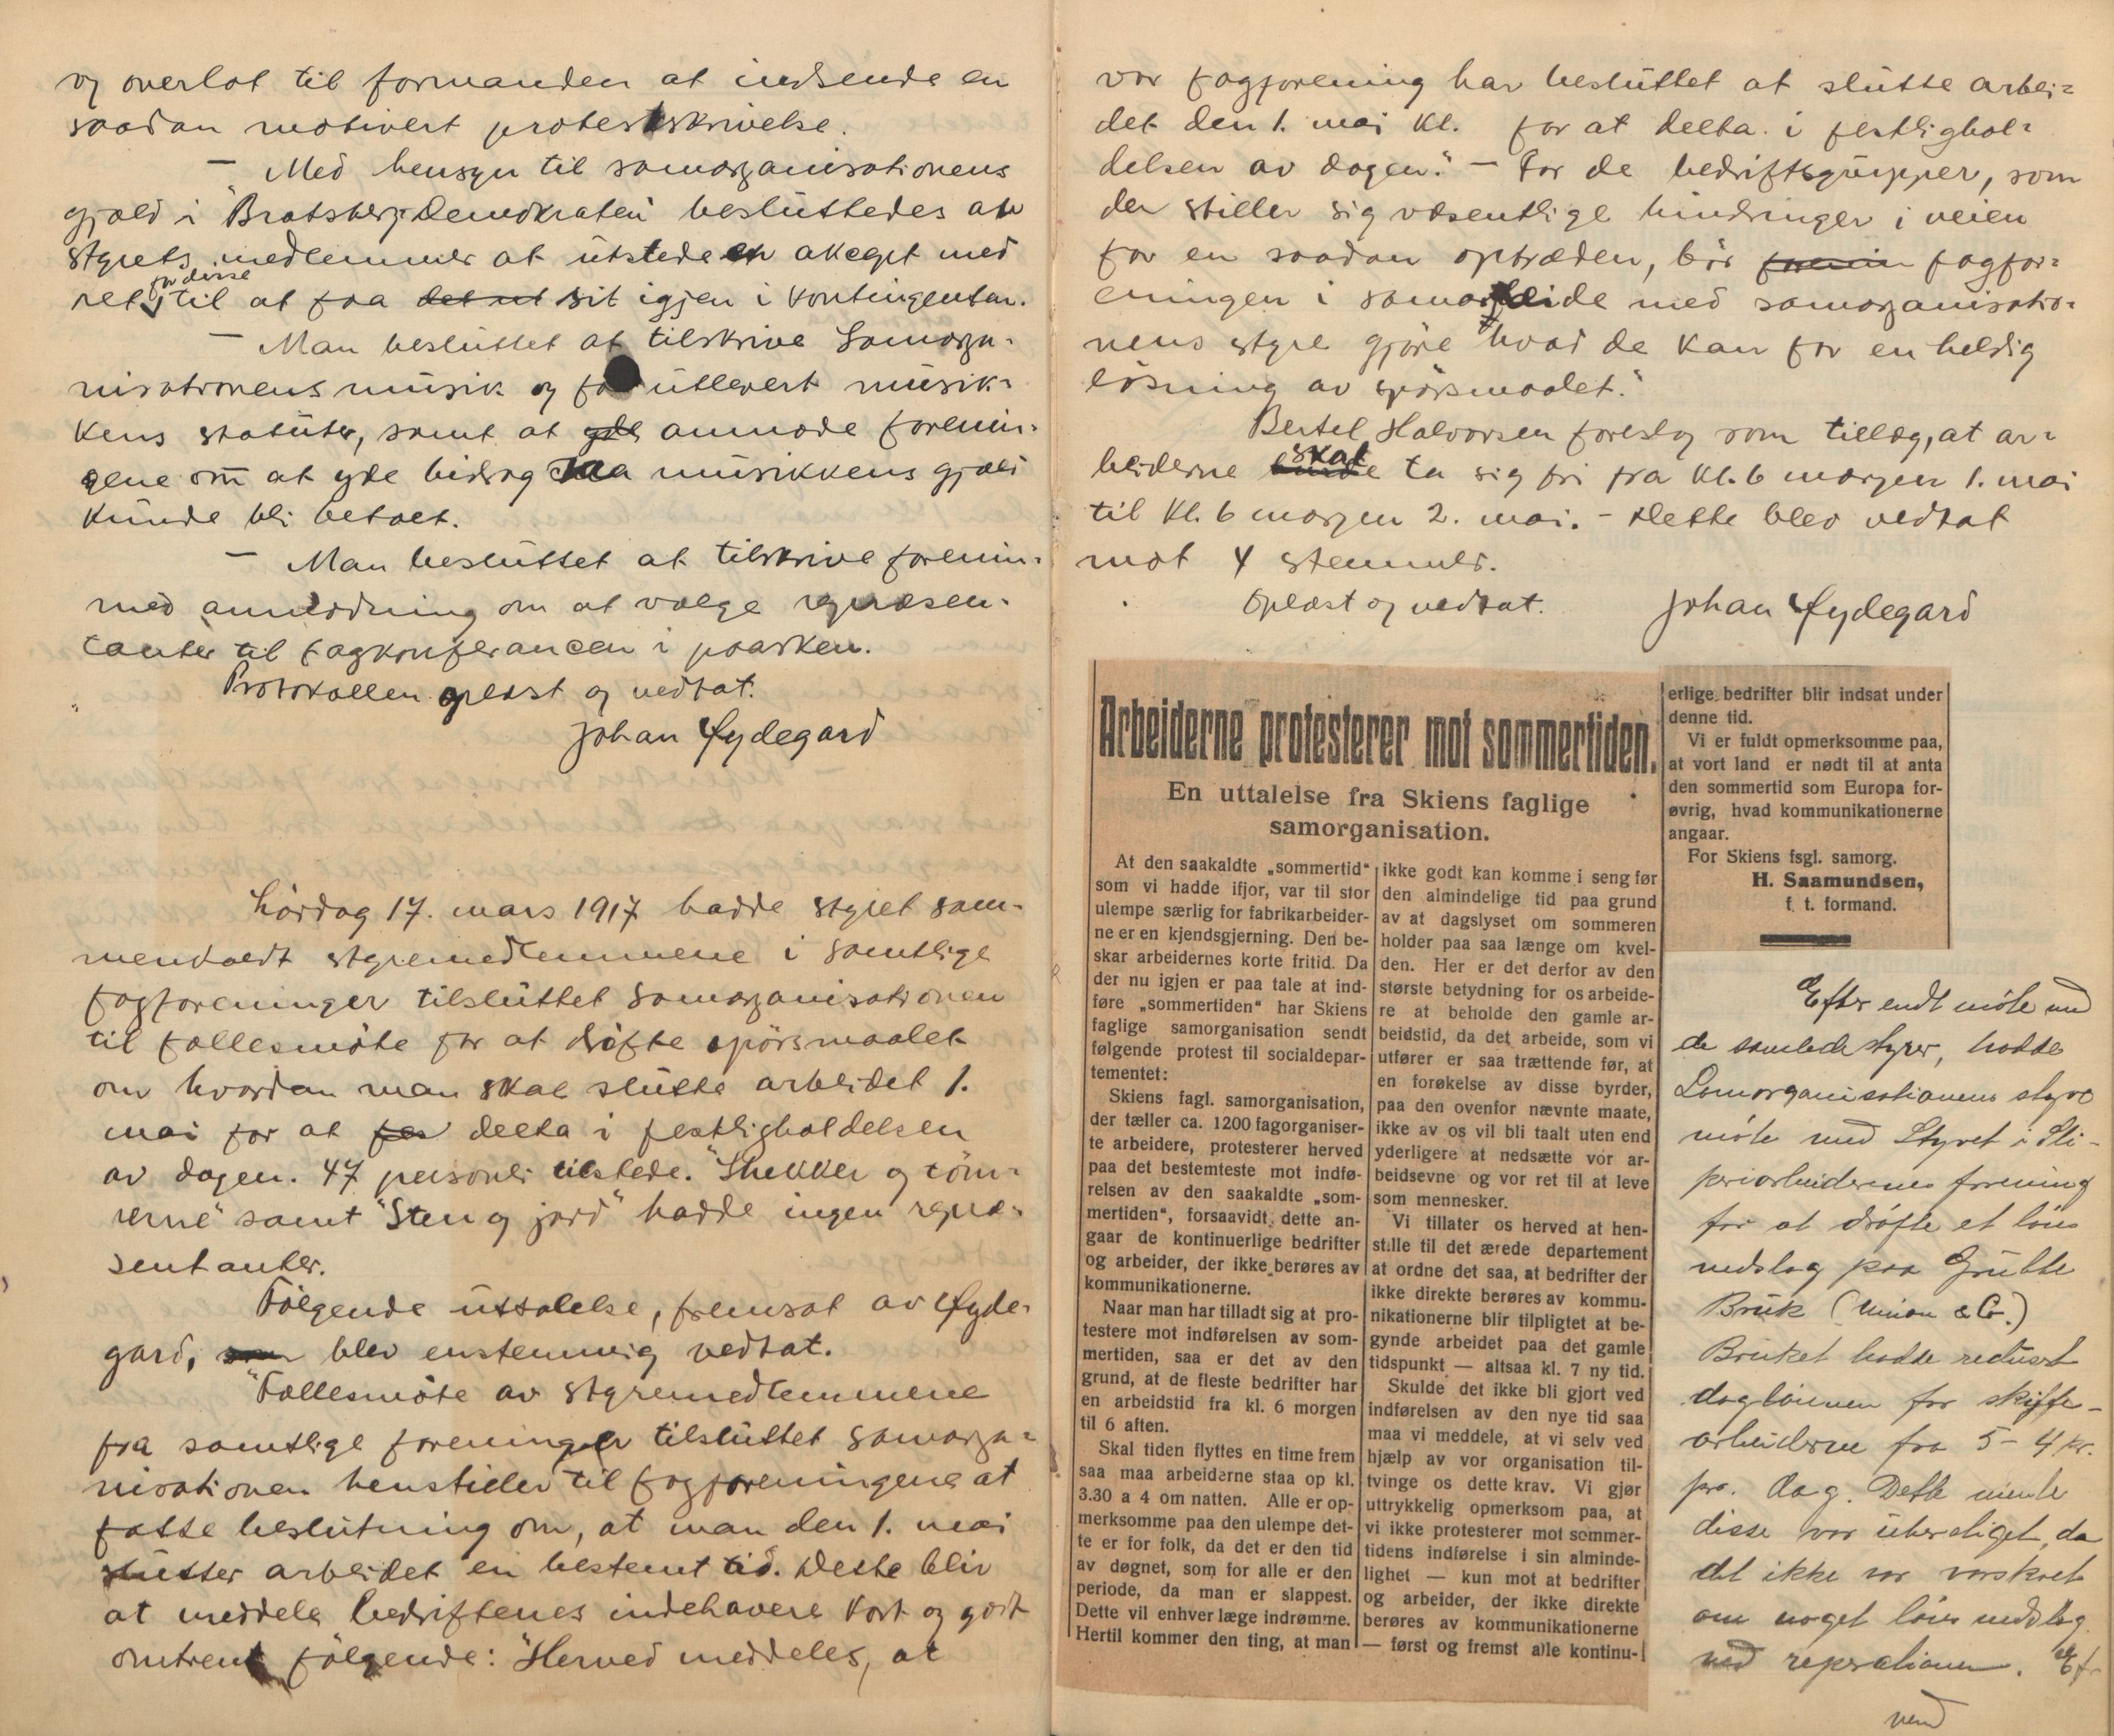 og overlot til formanden at indsende en
saadan motivert protestskrivelse.
— Med hensyn til samorganisationens
gjæld i "Bratsberg-Demokraten" besluttedes av
styrets medlemmer at utstede en akcept med
ret for disse til at faa det ut sit igjen i kontingenten.
— Man besluttet at tilskrive Samorga-
nisationens musik og faa utlevert musik-
kens statuter, samt at yde anmode forenin-
gene om at yde bidrag saa musikkens gjæld
kunde bli betalt.
— Man besluttet at tilskrive forenin-
med anmodning om at vælge repræsen-
tanter til fagkonferancen i paasken.
Protokollen oplæst og vedtat.
Johan Øydegard
Lördag 17. mars 1917 hadde styret sam-
menkaldt styremedlemmene i samtlige
fagforeninger tilsluttet samorganisationen
til fællesmöte for at dröfte spörsmaalet
om hvordan man skal slutte arbeidet 1.
mai for at fes delta i festligholdelsen
av dagen. 47 personer tilstede. "Snekker og töm-
rerne" samt "Sten og jord" hadde ingen repræ-
sentanter.
Fölgende uttalelse, fremsat av Øyde-
gard, som blev enstemmig vedtat.
"Fællesmöte av styremedlemmene
fra samtlige foreninger tilsluttet samorga-
nisationen henstiller til fagforeningene at
fatte beslutning om, at man den 1. mai
slutter arbeidet en bestemt tid. Dette blir
at meddele bedriftenes indehavere kort og godt
omtrent fölgende: "Herved meddeles, at
vor fagforening har besluttet at slutte arbei-
det den 1. mai kl. for at delta i festlighol-
delsen av dagen." — For de bedriftsgrupper, som
der stiller sig væsentlige hindringer i veien
for en saadan optræden, bör forenin fagfor-
eningen i samarbeide med samorganisatio-
nens styre gjöre hvad de kan for en heldig
lösning av spörsmaalet."
Bertel Halvorsen foreslog som tillæg, at ar-
beiderne skal ta sig fri fra kl. 6 morgen 1. mai
til kl. 6 morgen 2. mai. - Dette blev vedtat
mot 4 stemmer.
Oplæst og vedtat. Johan Øydegard
Arbeiderne protesterer mot sommertiden.
En uttalelse fra Skiens faglige
samorganisation.
At den saakaldte „sommertid“
som vi hadde ifjor, var til stor
ulempe særlig for fabrikarbeider-
ne er en kjendsgjerning. Den be-
skar arbeidernes korte fritid. Da
der nu igjen er paa tale at ind-
føre „sommertiden“ har Skiens
faglige samorganisation sendt
følgende protest til socialdepar-
tementet:
Skiens fagl. samorganisation,
der tæller ca. 1200 fagorganiser-
te arbeidere, protesterer herved
paa det bestemteste mot indfø-
relsen av den saakaldte „som-
mertiden“, forsaavidt dette an-
gaar de kontinuerlige bedrifter
og arbeider, der ikke berøres av
kommunikationerne.
Naar man har tilladt sig at pro-
testere mot indførelsen av som-
mertiden, saa er det av den
grund, at de fleste bedrifter har
en arbeidstid fra kl. 6 morgen
til 6 aften.
Skal tiden flyttes en time frem
saa maa arbeiderne staa op kl.
3.30 a 4 om natten. Alle er op-
merksomme paa den ulempe det-
te er for folk, da det er den tid
av døgnet, som for alle er den
periode, da man er slappest.
Dette vil enhver læge indrømme.
Hertil kommer den ting, at man
ikke godt kan komme i seng før
den almindelige tid paa grund
av at dagslyset om sommeren
holder paa saa længe om kvel-
den. Her er det derfor av den
største betydning for os arbeide-
re at beholde den gamle ar-
beidstid, da det arbeide, som vi
utfører er saa trættende før, at
en forøkelse av disse byrder,
paa den ovenfor nævnte maate,
ikke av os vil bli taalt uten end
yderligere at nedsætte vor ar-
beidsevne og vor ret til at leve
som mennesker.
Vi tillater os herved at hen-
stille til det ærede departement
at ordne det saa, at bedrifter der
ikke direkte berøres av kommu-
nikationerne blir tilpligtet at be-
gynde arbeidet paa det gamle
tidspunkt — altsaa kl. 7 ny tid.
Skulde det ikke bli gjort ved
indførelsen av den nye tid saa
maa vi meddele, at vi selv ved
hjælp av vor organisation til-
tvinge os dette krav. Vi gjør
uttrykkelig opmerksom paa, at
vi ikke protesterer mot sommer-
tidens indførelse i sin alminde-
lighet — kun mot at bedrifter
og arbeider, der ikke direkte
berøres av kommunikationerne
— først og fremst alle kontinu-
erlige bedrifter blir indsat under
denne tid.
Vi er fuldt opmerksomme paa,
at vort land er nødt til at anta
den sommertid som Europa for-
øvrig, hvad kommunikationerne
angaar.
For Skiens fsgl. samorg.
H. Saamundsen,
f. t. formand.
Efter endt möte med
de samlede styrer, hadde
Samorganisationens styre
möte med Styret i Sli-
periarbeidernes forening
for at dröfte et löns
nedslag paa Grubbe
Bruk (Union & Co.)
Bruket hadde redusert
daglönnen for skifte-
arbeiderne fra 5 - 4 kr.
pro. dag. Dette mente
disse var uberetiget, da
det ikke var varskoet
om noget löns nedslag
ved reperationen. Ef-